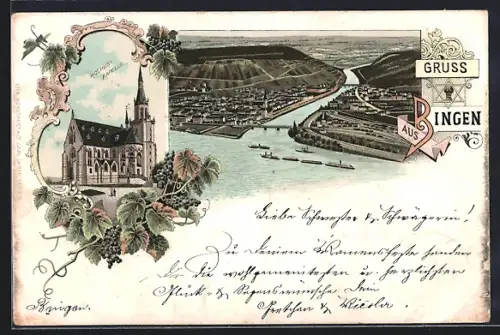 ROCHUS
KAPELLE
GRUSS
AUS
BINGEN
Liebe Schwester & Schwägerin!
Zu Deinem Namensfeste senden
Dir die wohlgemeintesten u. herzlichsten
Glück- & Segenswünsche Dein
Gretchen & Nicola
Bingen.